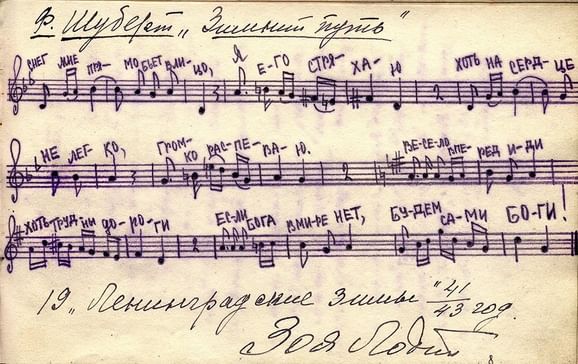 Ф. Шуберт „Зимний путь"
СНЕГ МНЕ ПРЯ- МО БЬЕТ В ЛИ- ЦО, Я Е-ГО СТРЯ- ХА- Ю 2 ХОТЬ НА СЕРД- ЦЕ
НЕ ЛЕГ- КО, ГРОМ- КО РАС-ПЕ- ВА- Ю. 2 ВЕ-СЕ-ЛО ВПЕ- РЕД И-ДИ
ХОТЬ ТРУД- НЫ ДО- РО- ГИ 2 ЕС-ЛИ БОГА В МИ-РЕ НЕТ, БУ-ДЕМ СА-МИ БО-ГИ!
19 „Ленинградские зимы" 41/43 год.
Зоя Лодий